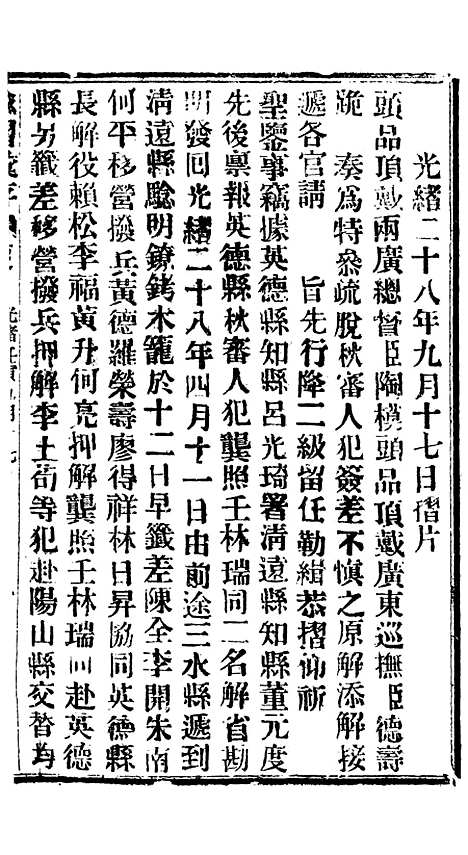 光緒二十八年九月十七日摺片
頭品頂戴兩廣總督臣陶模頭品頂戴廣東巡撫臣德壽
跪　奏爲特參疏脫秋審人犯簽差不慎之原解添解接
遞各官請　　旨先行降二級留任勒緝恭摺仰祈
聖鑒事竊據英德縣知縣呂光琦署淸遠縣知縣董元度
先後禀報英德縣秋審人犯龔照壬林瑞同二名解省勘
明發回光緒二十八年四月十一日由前途三水縣遞到
淸遠縣驗明鐐銬木籠於十二日早籤差陳全李開朱南
何平移營撥兵黃德羅榮壽廖得祥林日昇協同英德縣
長解役賴松李福黃升何亮押解龔照壬林瑞同赴英德
縣另籤差移營撥兵押解李土苟等犯赴陽山縣交替均